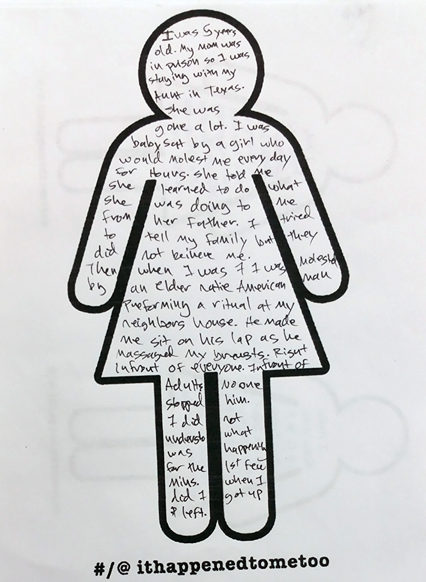 I was 5 years
old. My mom was
in prison so I was
staying with my
Aunt in Texas.
She was
gone a lot. I was
babysat by a girl who
would molest me every day
for Hours. She told me
she learned to do what
she was doing to me
from her father. I tried
to tell my family but they
did not believe me.
Then when I was 7 I was molested
by an elder native American man
Preforming a ritual at my
neighbors house. He made
me sit on his lap as he
massaged my breasts. Right
infront of everyone. Infront of
Adults No one
stopped him.
I did not
what
was happening
for the 1st few
mins. when I
did I got up
& left.
#/@ ithappenedtometoo